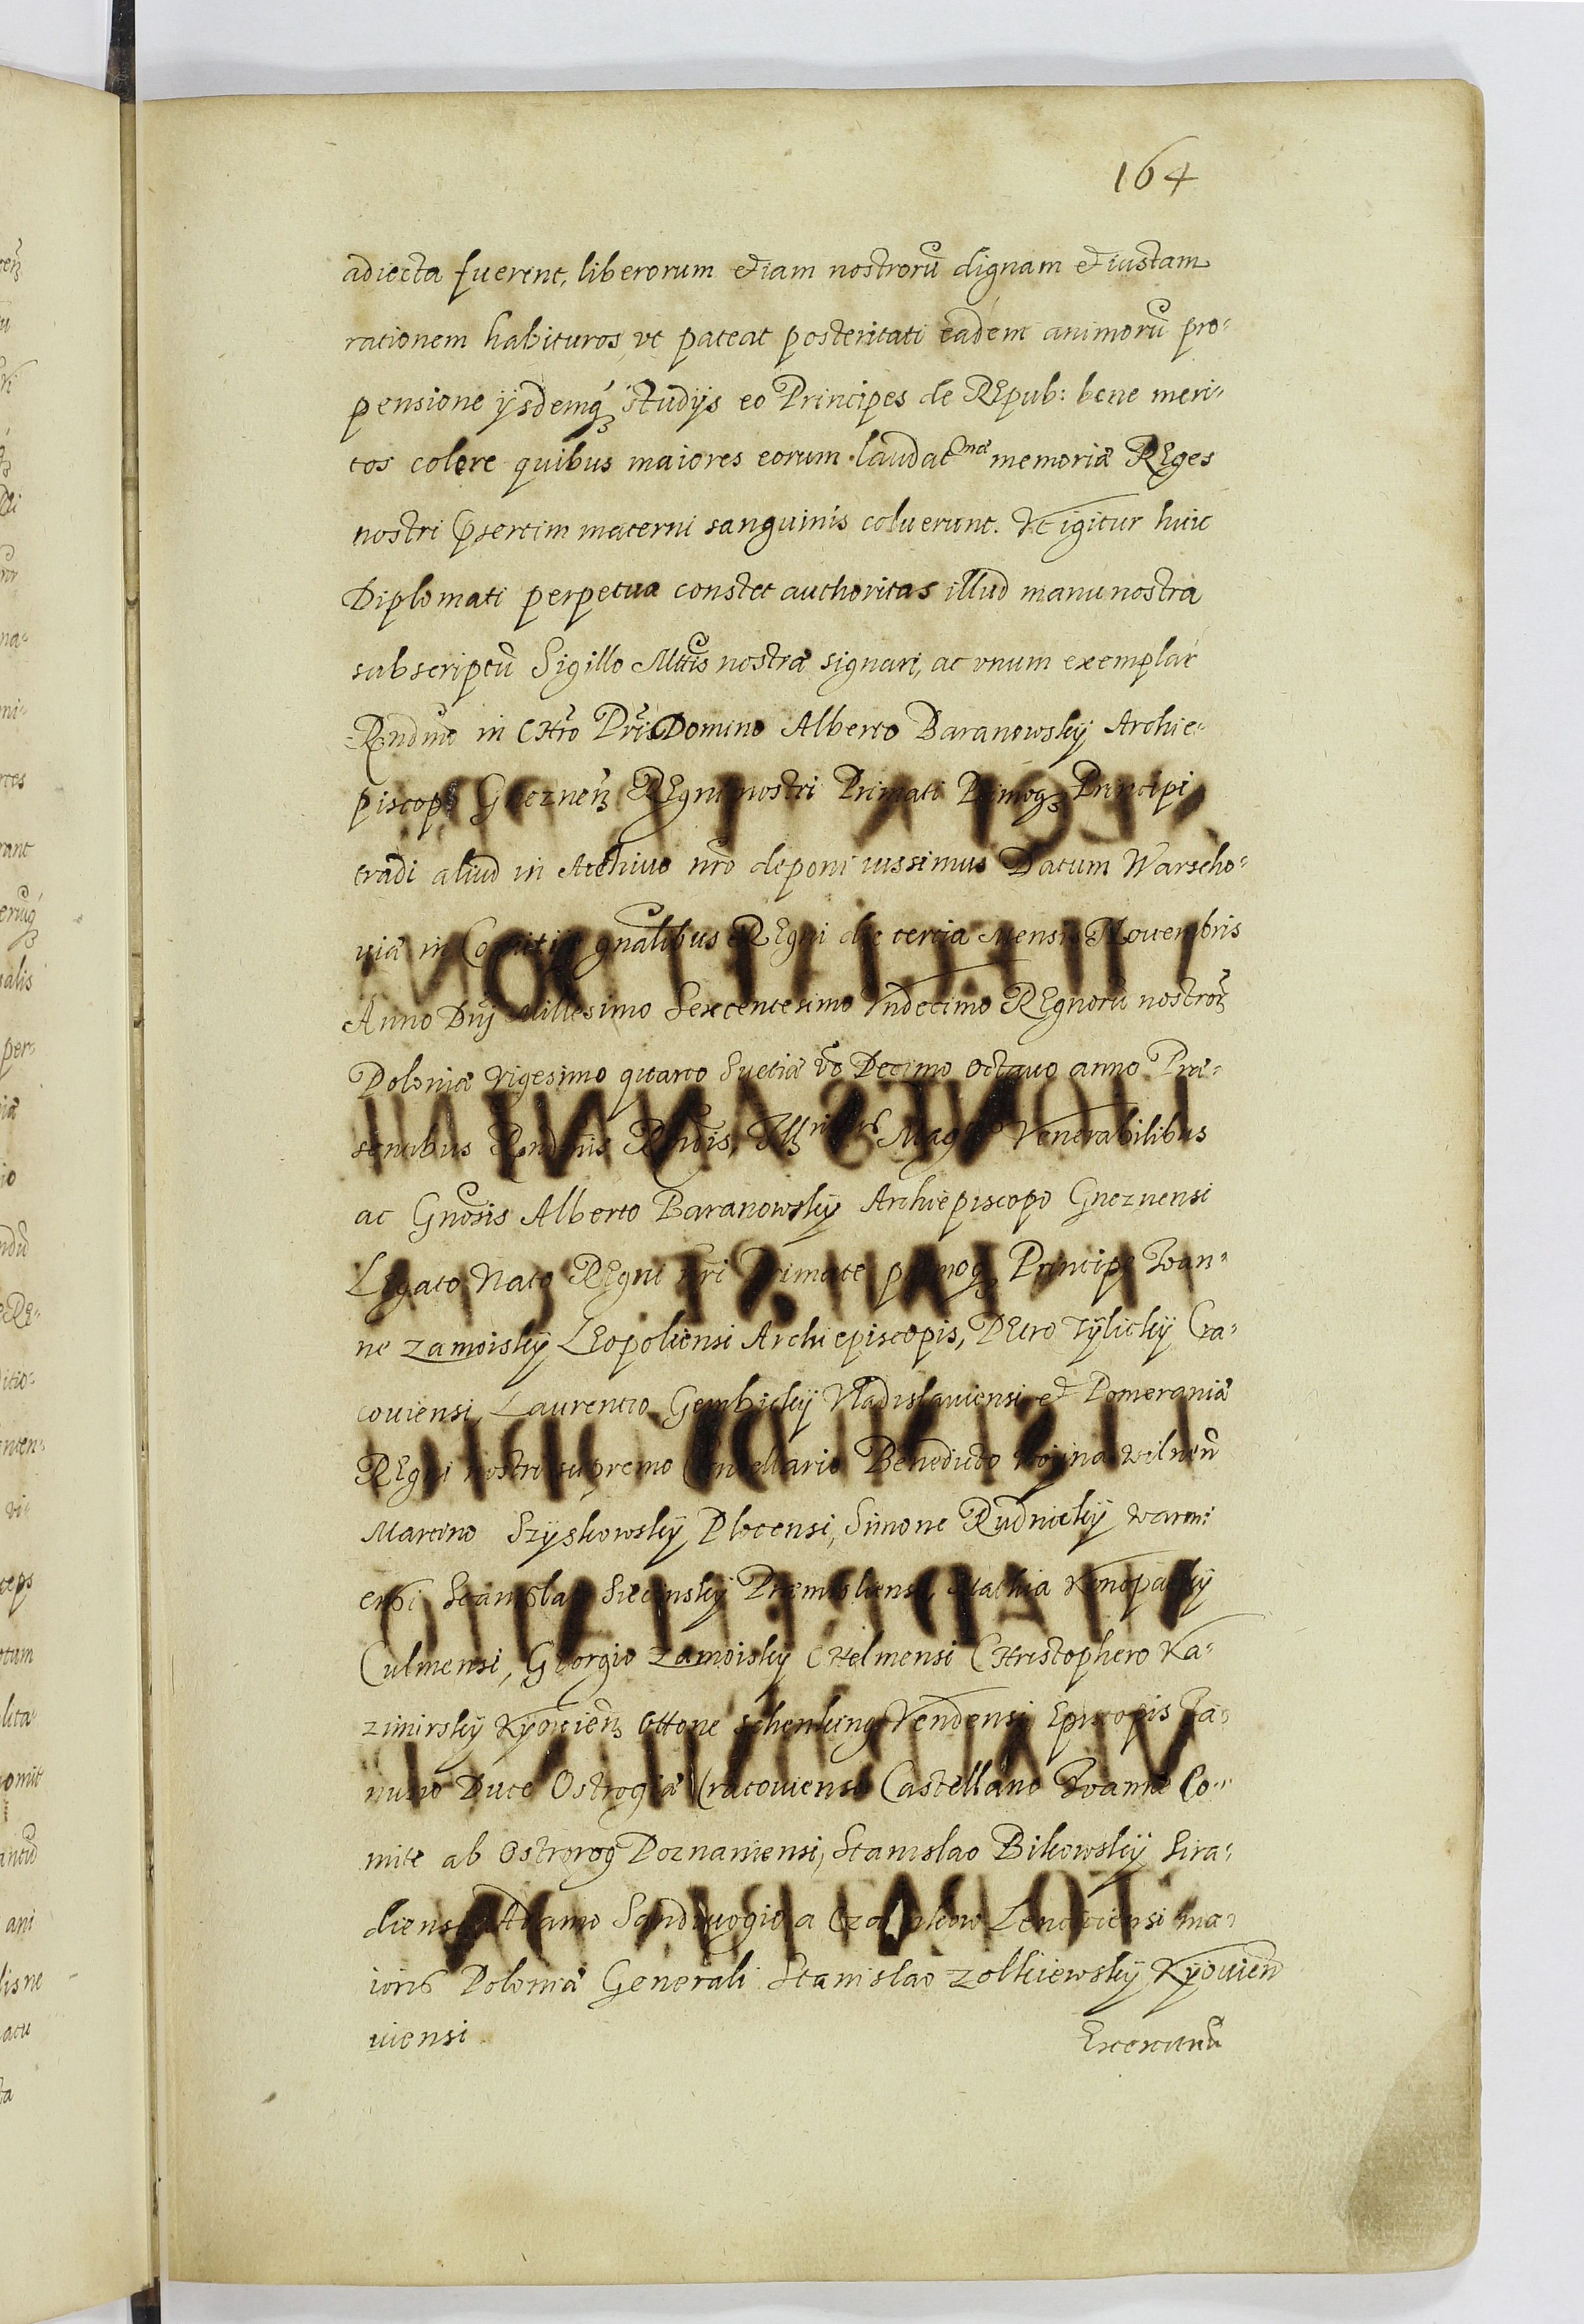 164
adiecta fuerint, liberorum etiam nostrorũ dignam et iustam
rationem habituros, vt pateat posteritati eadem animorũ pro-
pensione ijsdemq́ studijs eo Principes de REpub: bene meri-
tos colere quibus maiores eorum laudatmæ memoriæ REges
nostri pserTim materni sanguinis coluerunt. Vt igitur huic
Diplomati perpetua constet authoritas illud manu nostra
subscriptũ Sigillo Mttis nostræ signari, ac vnum exemplar
Rndmo in CHro Pri Domino Alberto Baranowskÿ Archie-
piscopo Gneznen REgni nostri Primati Primoq Principi
tradi aliud in Archiuo nro deponi iussimus Datum Warscho-
uiæ in Comitijs gnalibus REgni die tertia Mensis Nouembris
Anno Dnj Millesimo Sexcentesimo Vndecimo REgnorũ nostror
Poloniæ vigesimo quarto Suetiæ vo Decimo octauo anno Præ-
sentibus Rndmis Rndis, Magcis Venerabilibus
ac Gnosis Alberto Baranowskÿ Archiepiscopo Gneznensi
LEgato Nato REgni nri Primate primoq Principe Ioan-
ne Zamoiskÿ LEopoliensi Archiepiscopis, PEtro Tÿlickÿ Cra-
couiensi, Laurentio Gembickÿ Vladislauiensi et Pomeraniæ
REgni nostri supremo Cancellario Benedicto Woÿna Wilnen
Martino Szÿskowskÿ Plocensi, Simone Rudnickÿ Warmi
ensi Stanislao Siecinskÿ Præmisliensi, Mathia Konopackÿ
Culmensi, GEorgio Zamoiskÿ CHelmensi CHristophero Ka-
zimirskÿ Kÿouien Ottone Schenking Vendensi Episcopis Ja-
nusio Duce Ostrogiæ Cracouiensi Castellano Ioanne Co-
mite ab Ostrorog Poznaniensi, Stanislao Bikowskÿ Sira-
diensi Adamo Sandiuogio a Czarnkow Lenciciensi ma-
ioris Poloniæ Generali Stanislao Zolkiewskÿ Kÿouien
uiensi
Exercituũ